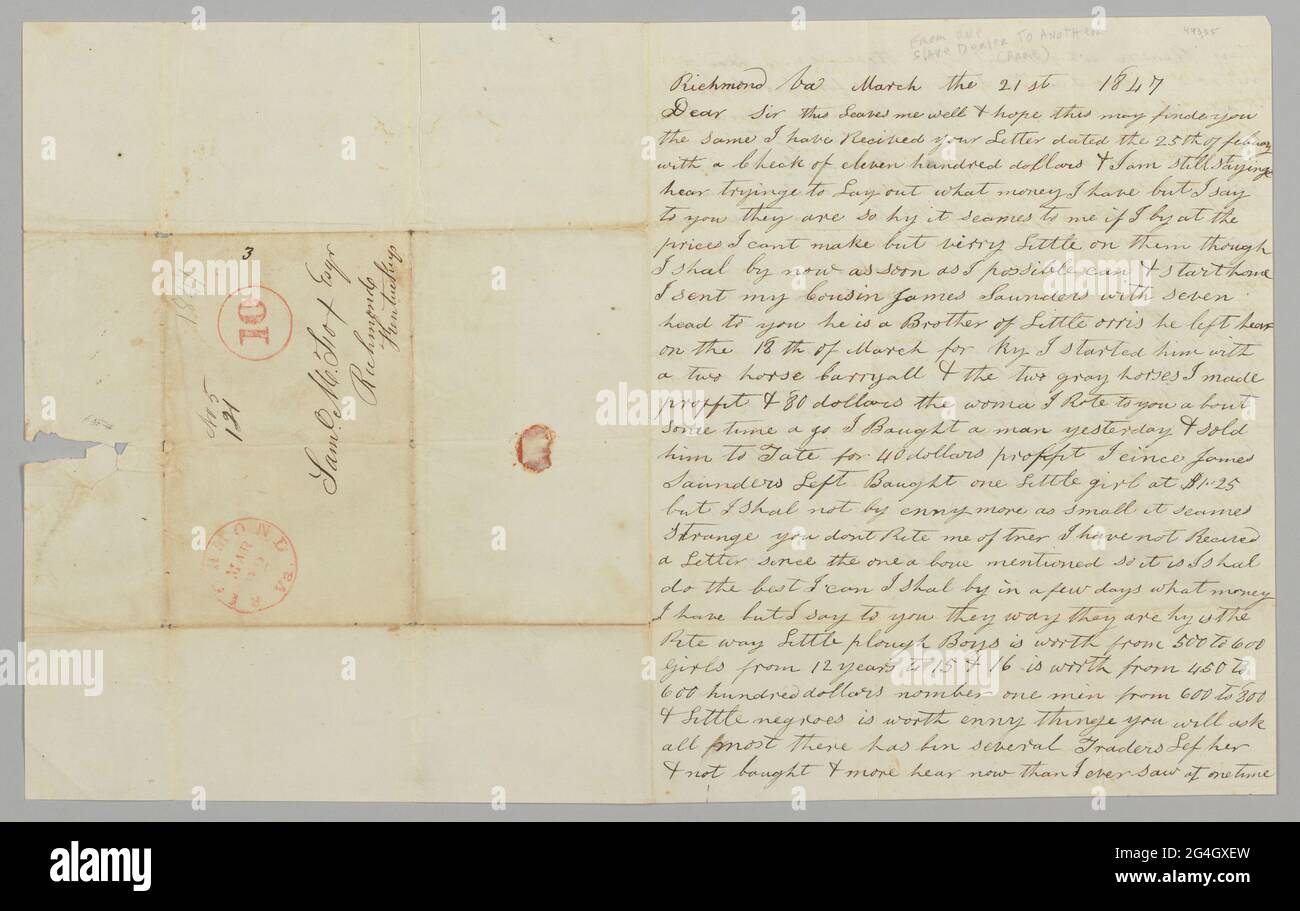 From one
Slave Dealer to Another
(Rare)
44335
Richmond Va March the 21st 1847
Dear Sir this Leaves me well & hope this may finde you
the same I have Recived your Letter dated the 25th of febuary
with a Check of eleven hundred dollars & I am still staying
hear tryinge to Lay out what money I have but I say
to you they are so hy it seames to me if I by at the
prices I cant make but verry Little on them though
I shal by now as soon as I possible can & start home
I sent my Cousin James Saunders with seven
head to you he is a Brother of Little orris he left hear
on the 18th of March for Ky I started him with
a two horse Carryall & the two gray horses I made
proffit & 80 dollars the woma I Rote to you a bout
some time a go I Baught a man yesterday & sold
him to Tate for 40 dollars proffit I cince James
Saunders Left Baught one Little girl at $1.25
but I shal not by enny more as small it seames
Strange you dont Rite me oftner I have not Recived
a Letter since the one a bove mentioned so it is I shal
do the best I can I shal by in a few days what money
I have but I say to you they way they are hy is the
Rite way Little plough Boys is worth from 500 to 600
Girls from 12 years to 15 & 16 is worth from 450 to
600 hundred dollars nomber one men from 600 to 800
& Little negroes is worth enny thinge you will ask
all most there has bin several Traders Lef her
& not baught & more hear now than I ever saw at one time
3
10
1847
Saml. M. Fox Esqr
Richmond
Kentucky
No 5
121
RICHMOND VA.
MAR
22
alamy
Image ID: 2G4GXEW
www.alamy.com